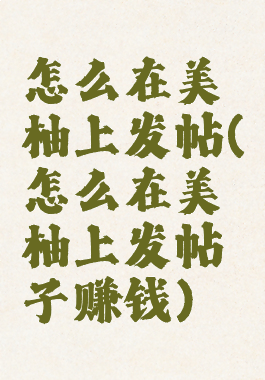 怎么在美
柚上发帖(
怎么在美
柚上发帖
子赚钱)